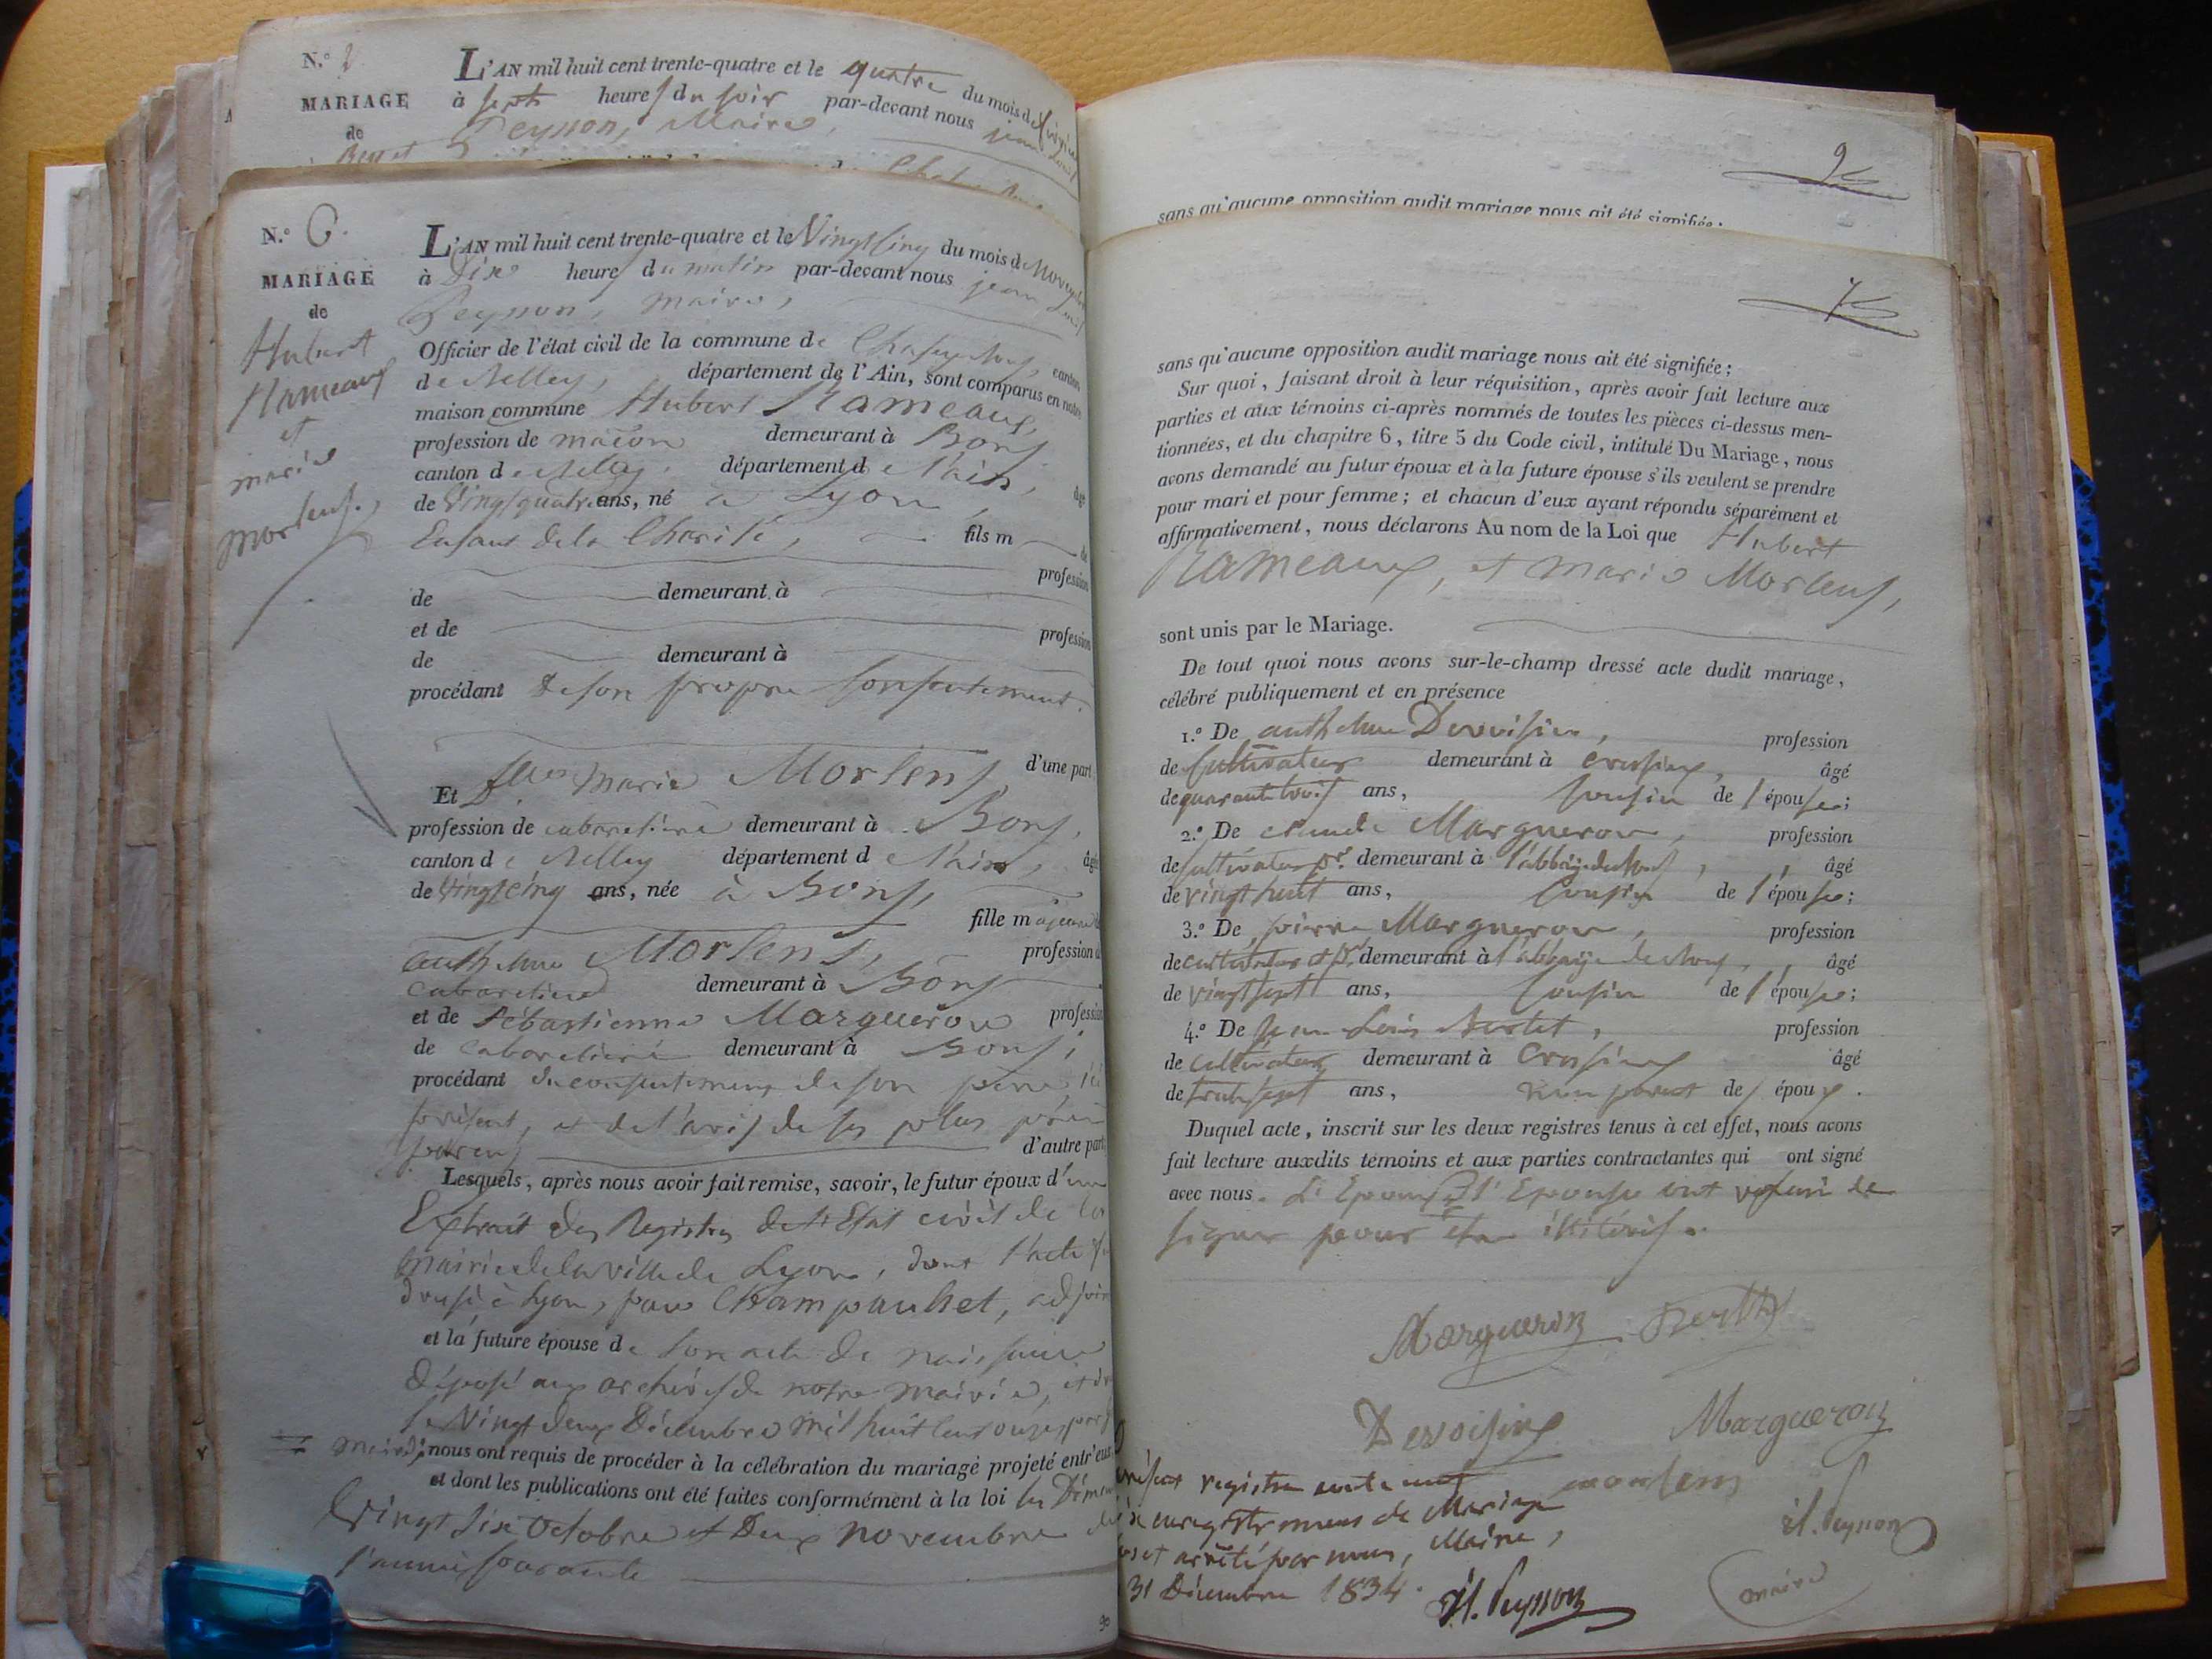 N.º 2
MARIAGE
de
L'AN mil huit cent trente-quatre et le quatre du mois de
à sept heures du soir par-devant nous jean Louis
Peysson, Maire,
N.º 6.
MARIAGE
de
Hubert
Rameaux
et
marie
mortens,
L'AN mil huit cent trente-quatre et le Vingt cinq du mois de Novembre
à Dix heures du matin par-devant nous jean Louis
Peysson, maire,
Officier de l'état civil de la commune de canton
de Belley, département de l'Ain, sont comparus en notre
maison commune Hubert Rameaux,
profession de maçon demeurant à Bons
canton de Belley, département de l'Ain, âgé
de Vingt quatre ans, né à Lyon,
Enfant de la Charité, fils m de
profession
de demeurant à
et de profession
de demeurant à
procédant de son propre consentement.
d'une part,
Et D.lle marie Mortens,
profession de cabaretière demeurant à Bons,
canton de Belley département de l'Ain, âgée
de Vingt cinq ans, née à Bons,
fille majeure d
anthelme Mortens, profession d
cabaretier demeurant à Bons
et de Sébastienne Margueron profession
de cabaretière demeurant à Bons,
procédant du consentement de son père, ici
présent, et de l'avis de ses plus près
parens d'autre part
Lesquels, après nous avoir fait remise, savoir, le futur époux d'un
Extrait des Registres de l'Etat civil de la
mairie de la ville de Lyon, dont l'acte fut
dressé à Lyon, par Champanhet, adjoint
et la future épouse de son acte de naissance
déposé aux archives de notre mairie, et
le Vingt deux Décembre mil huit cent par
maire; nous ont requis de procéder à la célébration du mariage projeté entr'eux
et dont les publications ont été faites conformément à la loi les Diman
Vingt six Octobre et Deux novembre de
l'année courante
9
sans qu'aucune opposition audit mariage nous ait été signifiée;
7
sans qu'aucune opposition audit mariage nous ait été signifiée;
Sur quoi, faisant droit à leur réquisition, après avoir fait lecture aux
parties et aux témoins ci-après nommés de toutes les pièces ci-dessus men-
tionnées, et du chapitre 6, titre 5 du Code civil, intitulé Du Mariage, nous
avons demandé au futur époux et à la future épouse s'ils veulent se prendre
pour mari et pour femme; et chacun d'eux ayant répondu séparément et
affirmativement, nous déclarons Au nom de la Loi que Hubert
Rameaux, et marie Mortens,
sont unis par le Mariage.
De tout quoi nous avons sur-le-champ dressé acte dudit mariage,
célébré publiquement et en présence
1.º De anthelme Devoisin, profession
de cultivateur demeurant à Crossieux, âgé
de quarante trois ans, cousin de l'épouse;
2.º De claude Margueron, profession
de cultivateur pr. demeurant à l'abbaye de Bons, âgé
de vingt huit ans, cousin de l'épouse;
3.º De pierre Margueron, profession
de cultivateur demeurant à l'abbaye de Bons, âgé
de vingt sept ans, cousin de l'épouse;
4.º De jean Louis Bertet, profession
de cultivateur demeurant à Crossieux âgé
de trente sept ans, non parent des époux.
Duquel acte, inscrit sur les deux registres tenus à cet effet, nous avons
fait lecture auxdits témoins et aux parties contractantes qui ont signé
avec nous. L'Epoux et l'Epouse ont refusé de
signer pour être illitérés.
Margueron
Devoisin Margueron
mortens
présent registre
enregistremens de Mariage
et arrêté par nous, Maire,
31 Décembre 1834.
Jl. Peysson
Jl. Peysson
maire